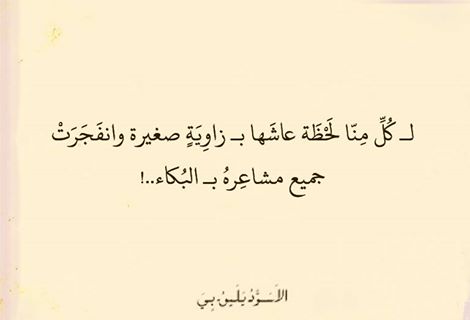 لـ كُلِّ مِنّا لَحْظَة عاشَها بـ زاوِيَةٍ صغيرة وانفَجَرَتْ
جميع مشاعِرهُ بـ البُكاء..!
الأسوَدْ يَليقُ بِيَ